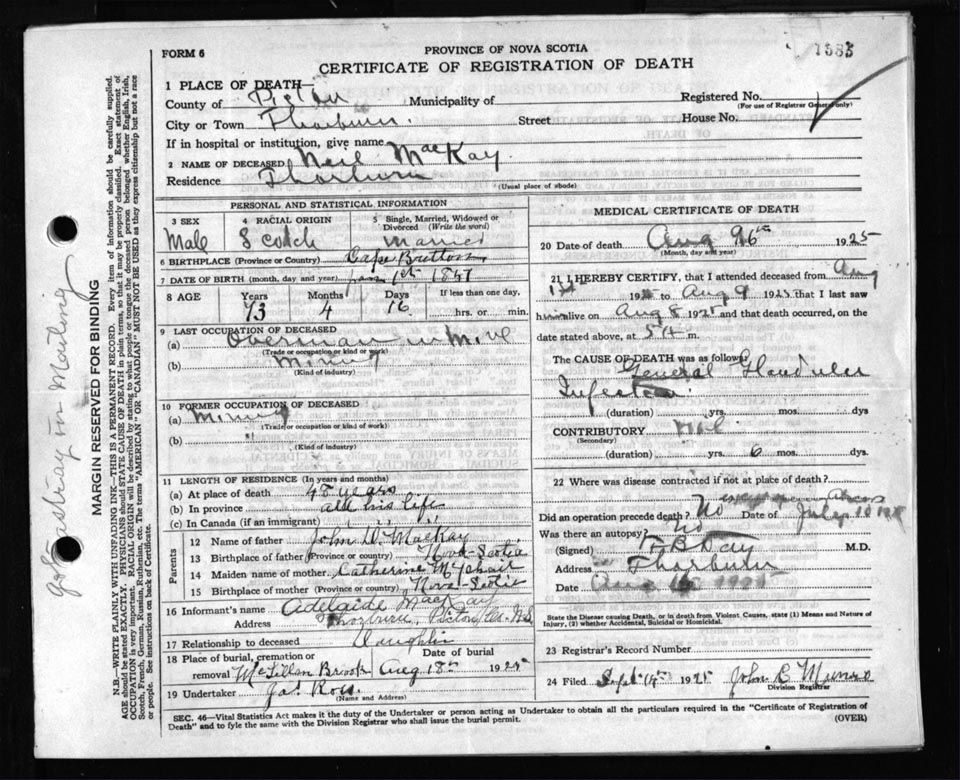 1383
FORM 6
PROVINCE OF NOVA SCOTIA
CERTIFICATE OF REGISTRATION OF DEATH
1 PLACE OF DEATH—
County of Pictou Municipality of Registered No.
(For use of Registrar General only)
City or Town Thorburn. Street House No.
If in hospital or institution, give name
2 NAME OF DECEASED Neil MacKay.
Residence Thorburn
(Usual place of abode)
PERSONAL AND STATISTICAL INFORMATION
3 SEX 4 RACIAL ORIGIN 5 Single, Married, Widowed or Divorced (Write the word)
Male Scotch Married
6 BIRTHPLACE (Province or Country) Cape Bretton
7 DATE OF BIRTH (month, day and year)
8 AGE Years Months Days If less than one day,
73 4 16 hrs. or min.
9 LAST OCCUPATION OF DECEASED
(a) Overman in Mine
(Trade or occupation or kind or work)
(b) Mining
(Kind of industry)
10 FORMER OCCUPATION OF DECEASED
(a) Mining
(Trade or occupation or kind of work)
(b) "
(Kind of industry)
11 LENGTH OF RESIDENCE (In years and months)
(a) At place of death 48 years
(b) In province all his life
(c) In Canada (if an immigrant) " " "
Parents
12 Name of father John D. MacKay
13 Birthplace of father (Province or country) Nova Scotia
14 Maiden name of mother Catherine McPhail
15 Birthplace of mother (Province or country) Nova Scotia
16 Informant's name Adelaide MacKay
Address Thorburn, Pictou Co. N.S.
17 Relationship to deceased Daughter
18 Place of burial, cremation or removal Date of burial
McLellan Brook Aug 18th 1925
19 Undertaker Jas. Ross
(Name and Address)
MEDICAL CERTIFICATE OF DEATH
20 Date of death Aug 1925
(Month, day and year)
21 I HEREBY CERTIFY, that I attended deceased from Aug
19 to Aug 9 1925 that I last saw
h alive on Aug 8 1925 and that death occurred, on
date stated above, at 5 m.
The CAUSE OF DEATH was as follows:
General Glandular
Infection
(duration) yrs. mos. dys
CONTRIBUTORY
(Secondary)
(duration) yrs. 6 mos. dys.
22 Where was disease contracted if not at place of death?
Did an operation precede death? No Date of July
Was there an autopsy? No
(Signed) M.D.
Address Thorburn
Date Aug 16 1925
State the Disease causing Death, or in death from Violent Causes, state (1) Means and Nature of Injury, (2) whether Accidental, Suicidal or Homicidal.
23 Registrar's Record Number
24 Filed Sept 14th 1925 John C Munro
Division Registrar
SEC. 46—Vital Statistics Act makes it the duty of the Undertaker or person acting as Undertaker to obtain all the particulars required in the "Certificate of Registration of
Death" and to fyle the same with the Division Registrar who shall issue the burial permit. (OVER)
MARGIN RESERVED FOR BINDING
N.B.—WRITE PLAINLY WITH UNFADING INK—THIS IS A PERMANENT RECORD. Every item of information should be carefully supplied.
AGE should be stated EXACTLY. PHYSICIANS should STATE CAUSE OF DEATH in plain terms, so that it may be properly classified. Exact statement of
OCCUPATION is very important. RACIAL ORIGIN will be described by stating to what people or tongue the deceased person belonged whether English, Irish,
Scotch, French, German, Russian, Ruthenian, etc. The terms "AMERICAN" OR "CANADIAN" MUST NOT BE USED as they express citizenship but not a race
or people. See instructions on back of Certificate.